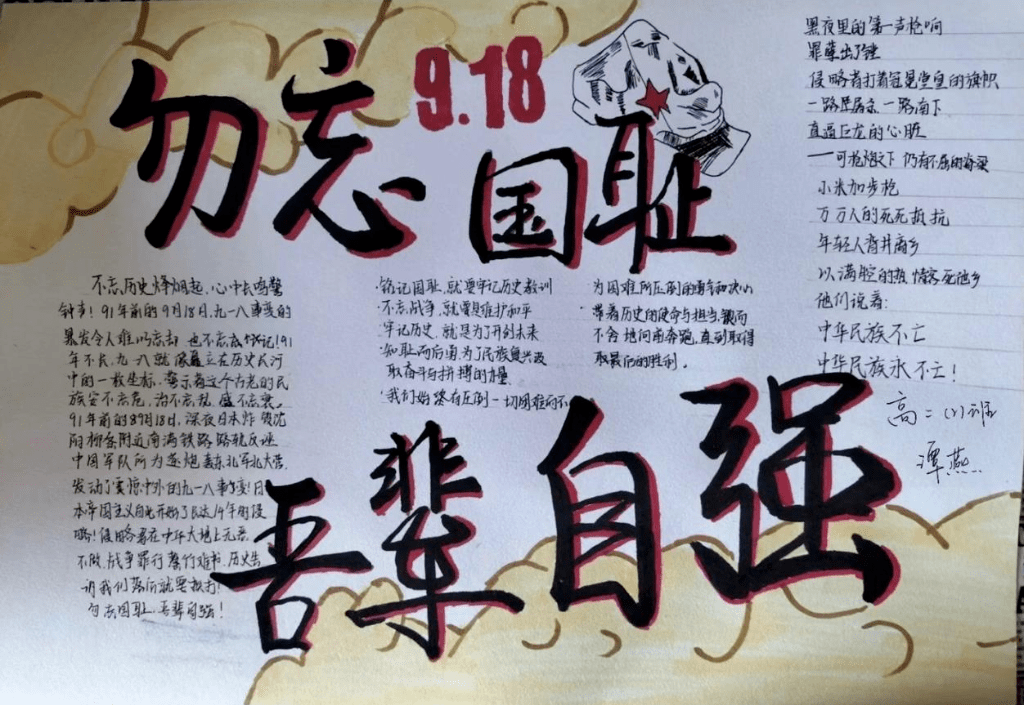 勿忘
9.18
国耻
不忘历史烽烟起,心中长鸣警
钟声!91年前的9月18日,九一八事变的
爆发令人难以忘却 也不忘忘记!91
年不长,九一八就像矗立在历史长河
中的一枚坐标,警示着这个古老的民
族安不忘危,治不忘乱,盛不忘衰。
91年前的8月18日,深夜日本炸毁沈
阳柳条附近南满铁路路轨反诬
中国军队所为 炮轰东北军北大营,
发动了震惊中外的九一八事变!日
本帝国主义自此开始了长达14年的侵
略!侵略者在中华大地上无恶
不做,战争罪行罄竹难书,历史告
诉我们落后就要挨打!
勿忘国耻,吾辈自强!
·铭记国耻,就要牢记历史教训
·不忘战争,就要是维护和平
·牢记历史,就是为了开创未来
·知耻而后勇,为了民族复兴汲
取奋斗与拼搏的力量
·我们始终有压倒一切困难而不
为困难所压倒的勇气和决心
·带着历史的使命与担当,锲而
不舍地向前奔跑,直到取得
取最后的胜利。
黑夜里的第一声枪响
罪孽出了锤
侵略者打着冠冕堂皇的旗帜
一路屠杀 一路南下
直逼巨龙的心脏
——可枪炮之下 仍有不屈的脊梁
小米加步枪
万万人的死死抵抗
年轻人背井离乡
以满腔的热情客死他乡
他们说着:
中华民族不亡
中华民族永不亡!
高二(2)班
覃燕
吾辈自强